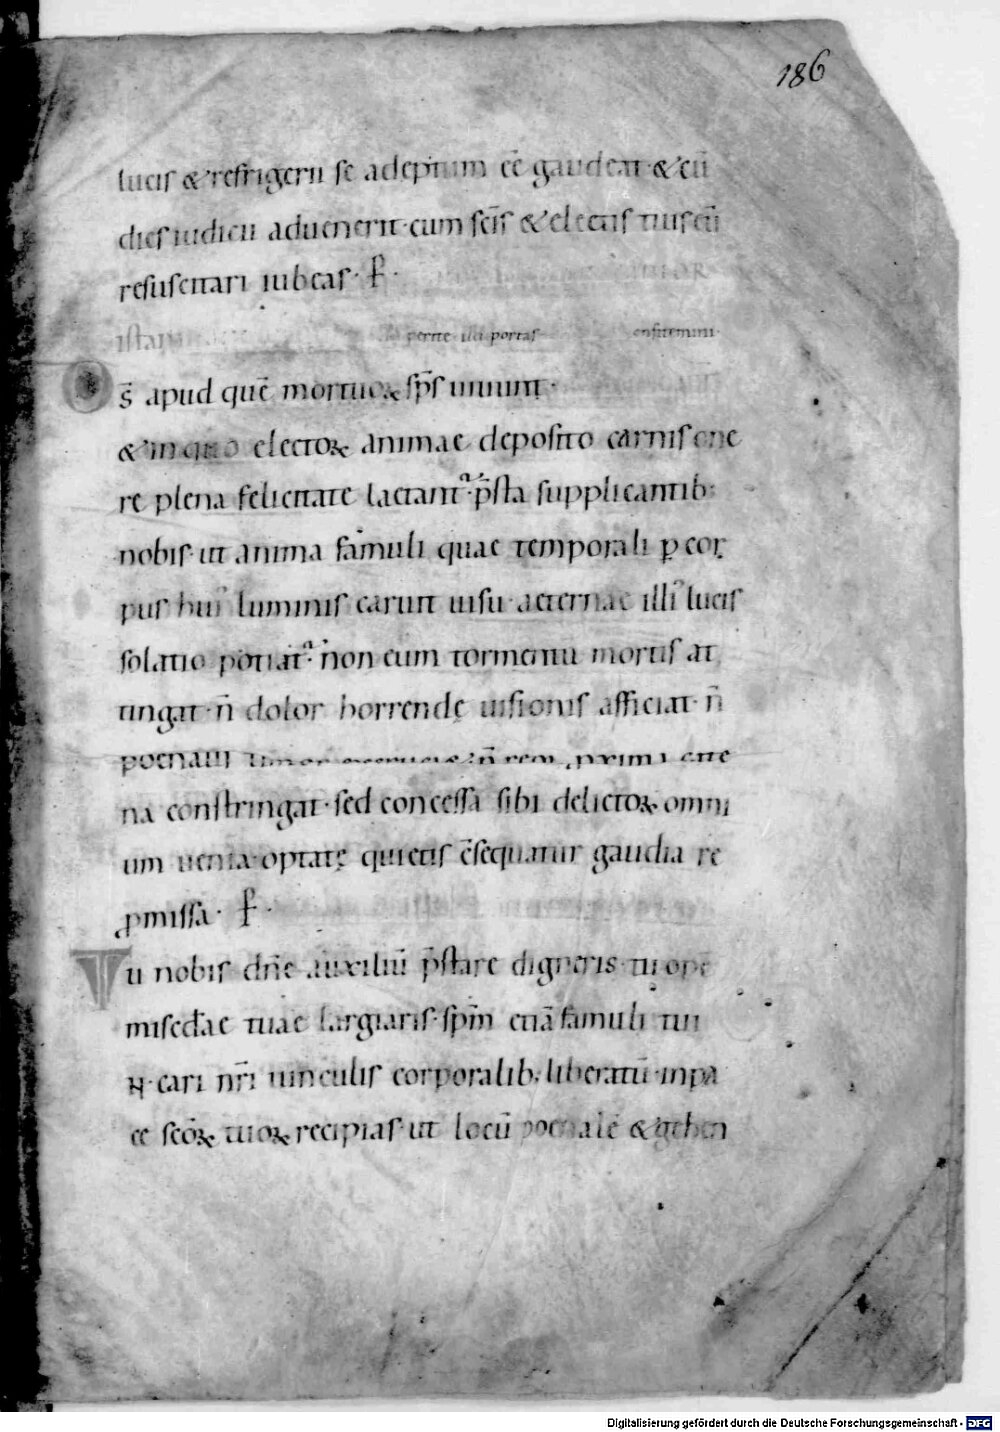 186
lucis & refrigerii se adeptum eē gaudeat & cū
dies iudicii aduenerit· cum scīs & electis tuis eū
resuscitari iubeas· ꝑ·
perite illi portas confitemini·
Ds̄ apud quē mortuoꝝ sp̄s uiuunt·
& in quo electoꝝ animae deposito carnis one
re plena felicitate laetant᷑· p̄sta supplicantib:
nobis· ut anima famuli quae temporali ꝑ cor
pus hui᷒ luminis caruit uisu· aeternae illi᷒ lucis
solatio potiat᷑· non eum tormentū mortis at
tingat· n̄ dolor horrendę uisionis afficiat· n̄
poenalis timor excruciet· n̄ reoꝝ proxima cate
na constringat· sed concessa sibi delictoꝝ omni
um uenia optatę quietis c̄sequatur gaudia re
ꝓmissa· ꝑ·
Tu nobis dn̄e auxiliū p̄stare digneris· tu ope
miscd̄ae tuae largiaris· sp̄m etiā famuli tui
N· cari nr̄i uinculis corporalib; liberatū· in pa
ce sc̄oꝝ tuoꝝ recipias· ut locū poenalē & gehen
Digitalisierung gefördert durch die Deutsche Forschungsgemeinschaft - DFG